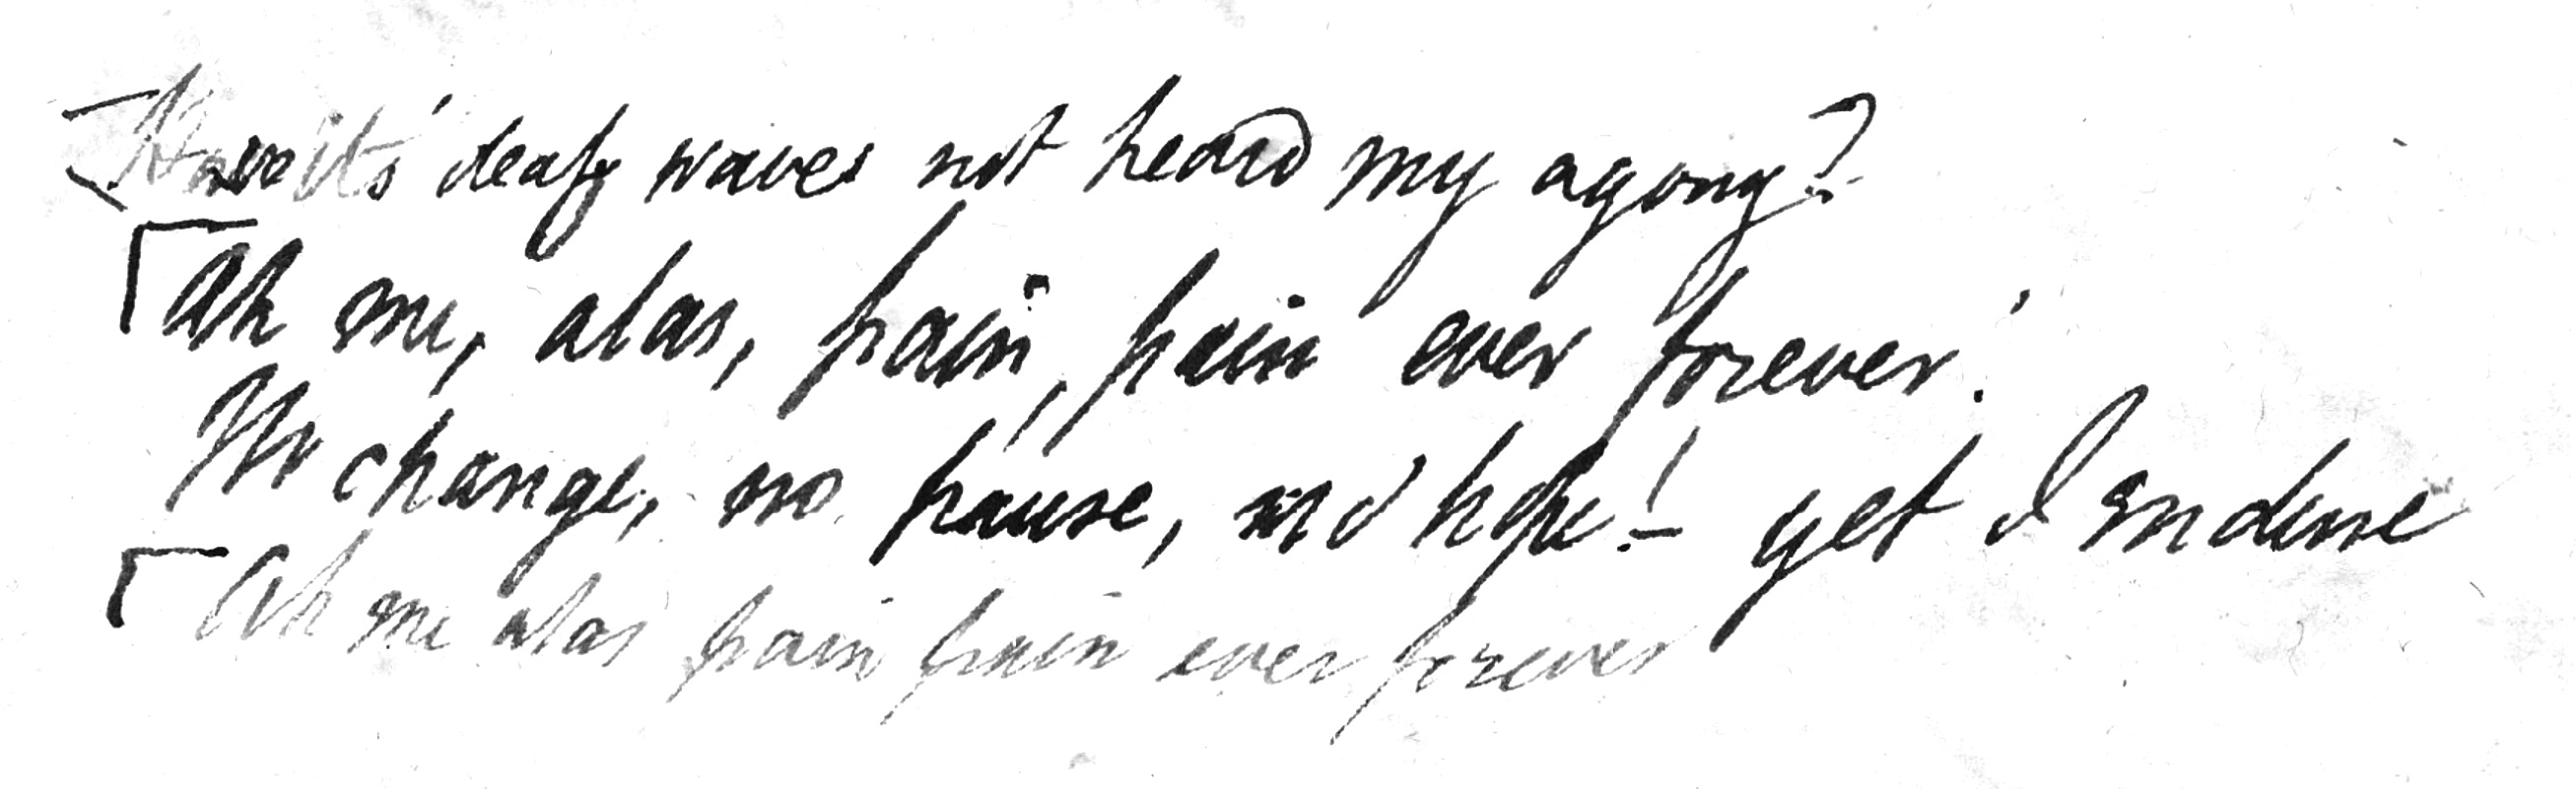 Have its' deaf waves not heard my agony?
Ah me, alas, pain, pain ever forever!
No change, no pause, no hope! – yet I endure
Ah me alas pain pain ever forever